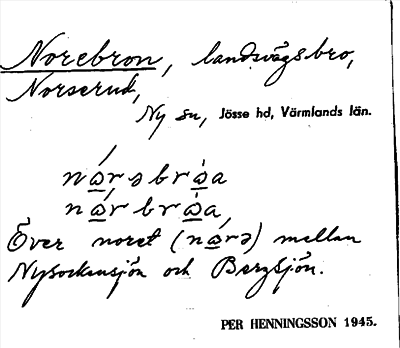 Norebron, landsvägsbro,
Norserud,
Ny sn, Jösse hd, Värmlands län.
nɷ̲́rəbrɷ̲̀a
nɷ̲́rbrɷ̲̀a
Över noret (nɷ̲rə) mellan
Nysockensjön och Bergsjön.
PER HENNINGSSON 1945.